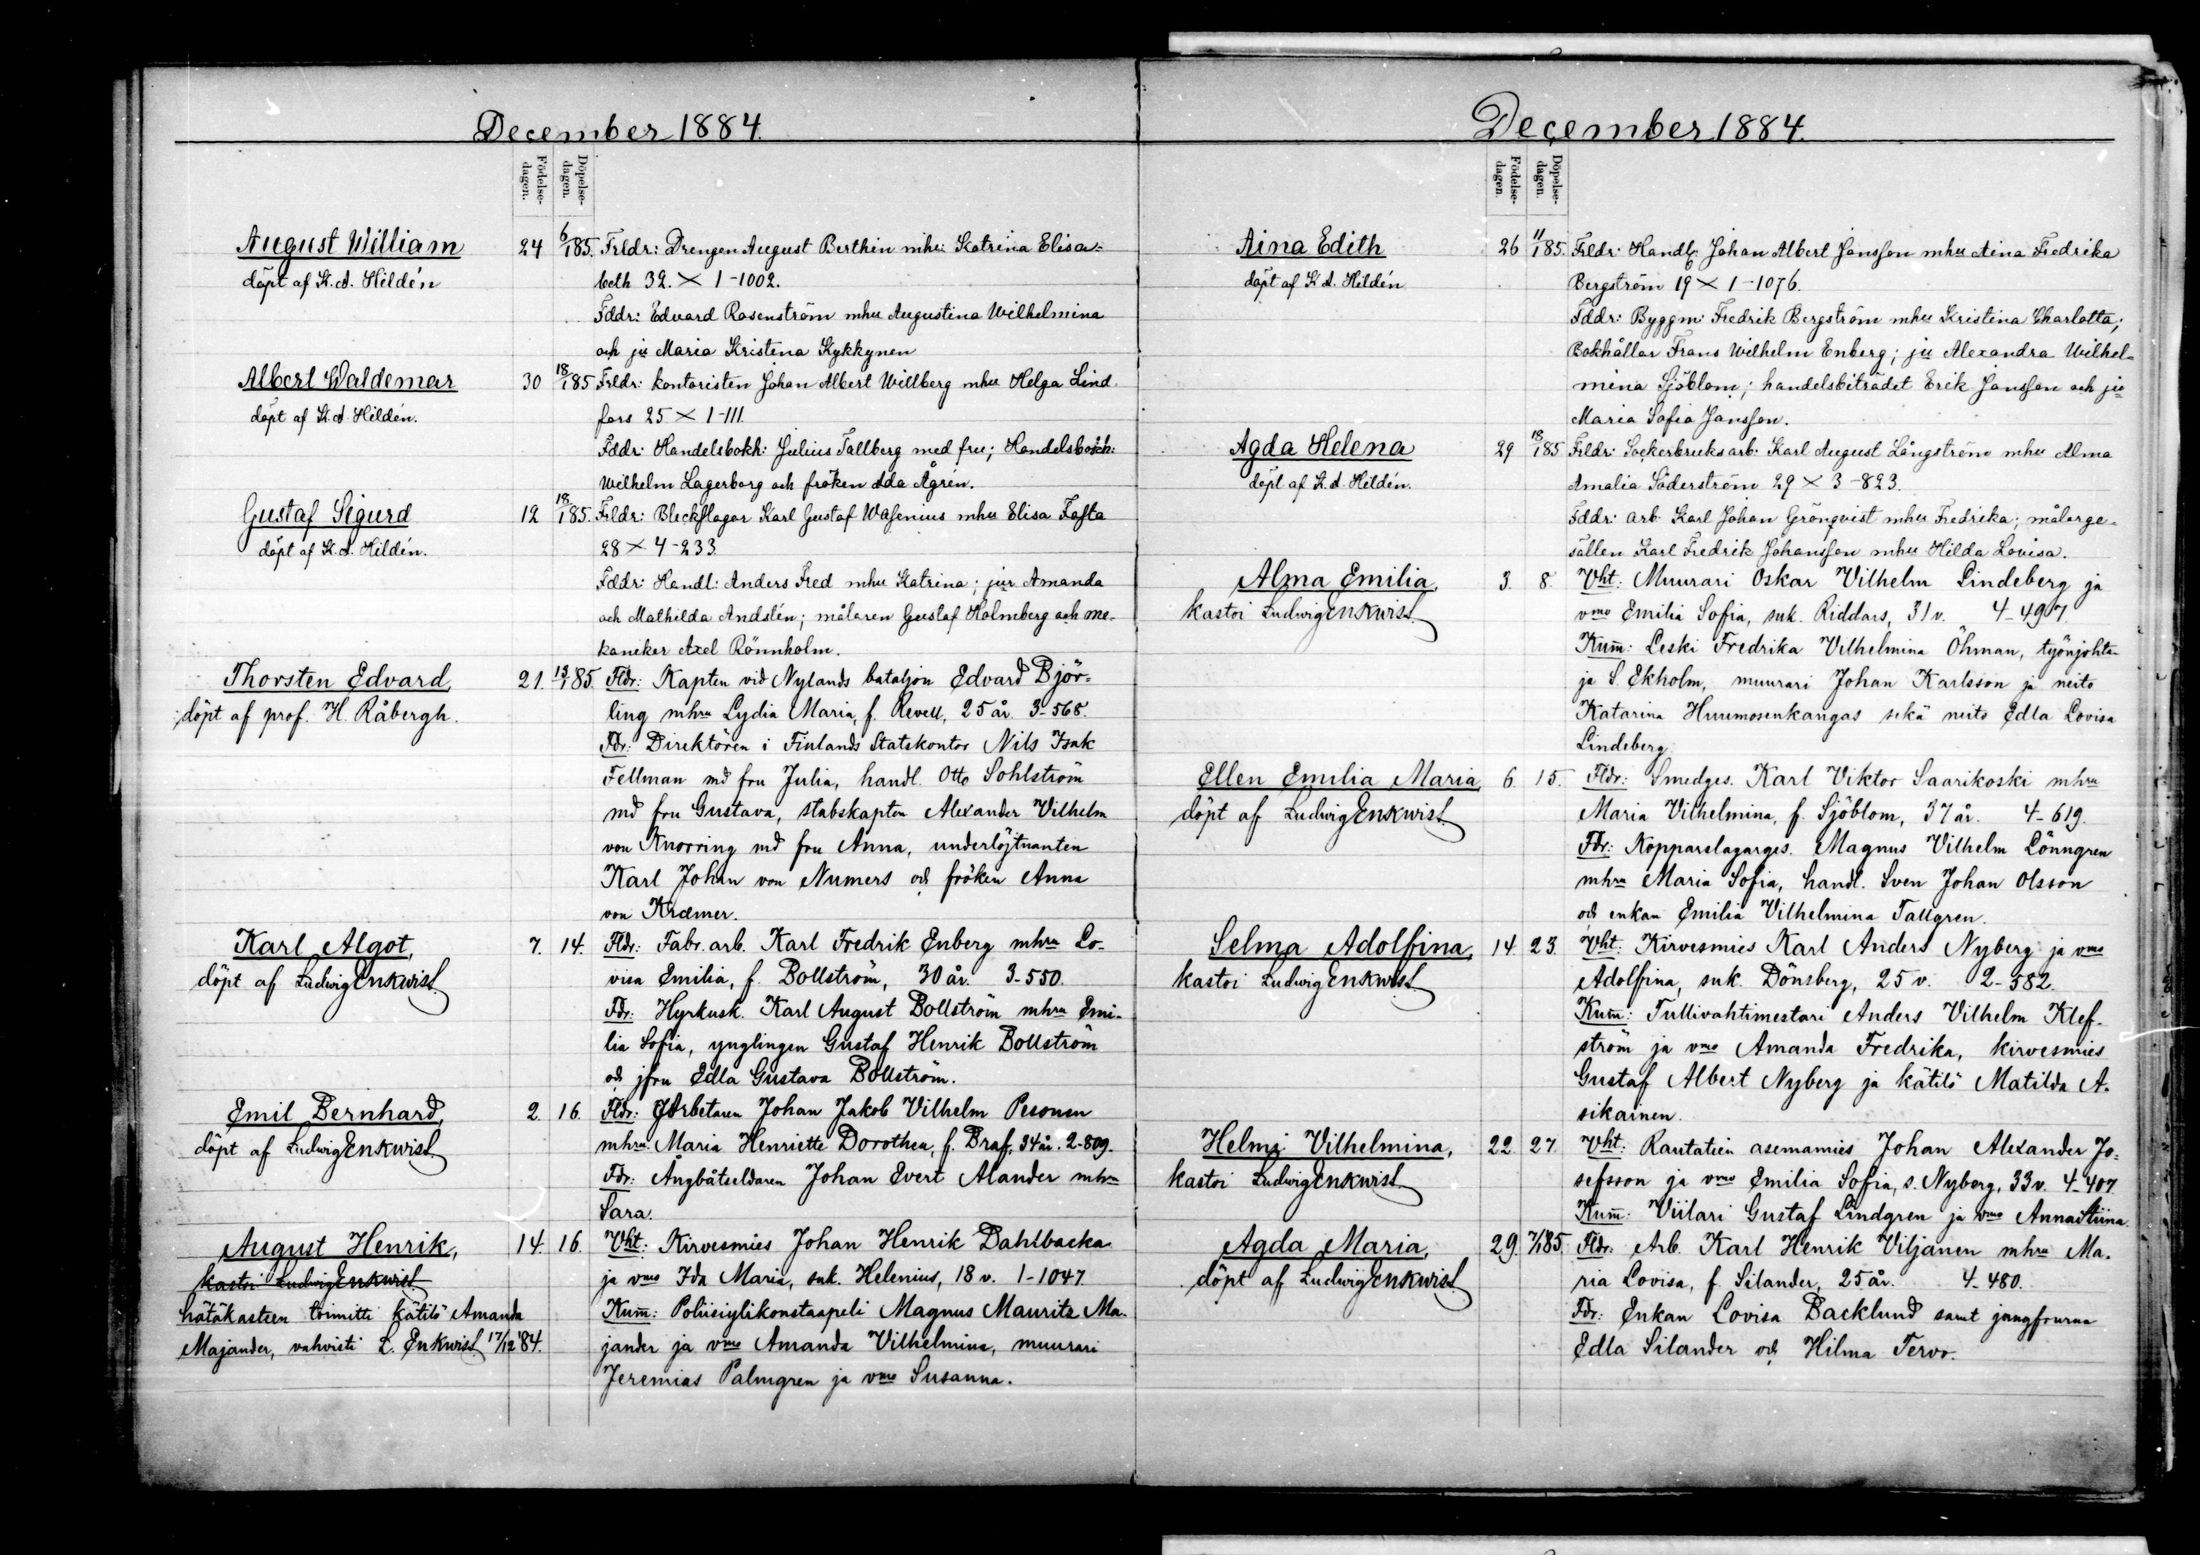 December 1884.
Födelse-
dagen.
Döpelse-
dagen.
August William
döpt af K. A. Hildén
24 6/1 85. Frldr: Drengen August Berthin mhu: Katrina Elisa-
beth 32. × 1-1002.
Fddr: Edvard Rosenström mhu Augustina Wilhelmina
och ju Maria Kristena Kykkynen
Albert Waldemar
döpt af K. A. Hildén.
30 18/1 85 Frldr: kontoristen Johan Albert Willberg mhu Helga Lind
fors 25 × 1-111.
Fddr: Handelsbokh: Julius Tallberg med fru; Handelsbokh:
Wilhelm Lagerborg och fröken Ada Ågren.
Gustaf Sigurd
döpt af K. A. Hildén.
12 18/1 85. Frldr: Bleckslagar Karl Gustaf Wasenius mhu Elisa Fasta
28 × 4-233.
Fddr: Handl: Anders Fred mhu Katrina; jur Amanda
och Mathilda Andstén; målaren Gustaf Holmberg och me-
kaniker Axel Rönnholm.
Thorsten Edvard,
döpt af prof. H. Råbergh.
21. 13/1 85. Fldr: Kapten vid Nylands bataljon Edvard Björ-
ling mhru Lydia Maria, f. Revell, 25 år. 3-568.
Fdr: Direktören i Finlands Statskontor Nils Isak
Fellman md fru Julia, handl. Otto Sohlström
md fru Gustava, stabskapten Alexander Vilhelm
von Knorring md fru Anna, underlöjtnanten
Karl Johan von Numers och fröken Anna
von Kræmer.
Karl Algot,
döpt af Ludwig Enkwist.
7. 14. Fldr: Fabr. arb. Karl Fredrik Enberg mhru Lo-
visa Emilia, f. Bollström, 30 år. 3-550.
Fdr: Hyrkusk. Karl August Bollström mhru Emi-
lia Sofia, ynglingen Gustaf Henrik Bollström
och jfru Edla Gustava Bollström.
Emil Bernhard,
döpt af Ludwig Enkwist
2. 16. Fldr: Arbetaren Johan Jakob Vilhelm Pesonen
mhru Maria Henriette Dorothea, f. Braff, 34 år. 2-809.
Fdr: Ångbåtseldaren Johan Evert Alander mhru
Sara.
August Henrik,
kastoi Ludwig Enkwist
hätäkasteen toimitti kätilö Amanda
Majander, vahvisti L. Enkwist 17/12 84.
14. 16. Vht: Kirvesmies Johan Henrik Dahlbacka
ja vmo Ida Maria, suk. Helenius, 18 v. 1-1047.
Kum: Poliisiylikonstaapeli Magnus Maurits Ma-
jander ja vmo Amanda Vilhelmina, muurari
Jeremias Palmgren ja vmo Susanna.
December 1884.
Födelse-
dagen.
Döpelse-
dagen.
Aina Edith
döpt af K A. Hildén
26 11/1 85. Frldr: Handl. Johan Albert Jansson mhu Aina Fredrika
Bergström 19 × 1-1076.
Fddr: Byggm: Fredrik Bergström mhu Kristina Charlotta;
Bokhållar Frans Wilhelm Enberg; ju Alexandra Wilhel-
mina Sjöblom; handelsbiträdet Erik Jansson och ju
Maria Sofia Jansson.
Agda Helena
döpt af K. A. Hildén.
29 18/1 85 Frldr: Sockerbruksarb: Karl August Långström mhu Alma
Amalia Söderström 29 × 3-823.
Fddr: arb. Karl Johan Grönqvist mhu Fredrika; målarge-
sällen Karl Fredrik Johansson mhu Hilda Lovisa.
Alma Emilia,
kastoi Ludwig Enkwist
3. 8. Vht: Muurari Oskar Vilhelm Lindeberg ja
vmo Emilia Sofia, suk. Riddars, 31 v. 4-497.
Kum: Leski Fredrika Vilhelmina Öhman, työnjohta-
ja S. Ekholm, muurari Johan Karlsson ja neito
Katarina Huumosenkangas sekä neito Edla Lovisa
Lindeberg.
Ellen Emilia Maria,
döpt af Ludwig Enkwist.
6. 15. Fldr: Smedges. Karl Viktor Saarikoski mhru
Maria Vilhelmina, f. Sjöblom, 37 år. 4-619.
Fdr: Kopparslagarges. Magnus Vilhelm Lönngren
mhru Maria Sofia, handl. Sven Johan Olsson
och enkan Emilia Vilhelmina Tallgren.
Selma Adolfina,
kastoi Ludwig Enkwist.
14. 23. Vht: Kirvesmies Karl Anders Nyberg ja vmo
Adolfina, suk. Dönsberg, 25 v. 2-582.
Kum: Tullivahtimestari Anders Vilhelm Klef-
ström ja vmo Amanda Fredrika, kirvesmies
Gustaf Albert Nyberg ja kätilö Matilda A-
sikainen.
Helmi Vilhelmina,
kastoi Ludwig Enkwist
22. 27. Vht: Rautatien asemamies Johan Alexander Jo-
sefsson ja vmo Emilia Sofia, s. Nyberg, 33 v. 4-407.
Kum: Viilari Gustaf Lindgren ja vmo Anna Stiina.
Agda Maria,
döpt af Ludwig Enkwist.
29. 7/1 85. Fldr: Arb. Karl Henrik Viljanen mhru Ma-
ria Lovisa, f. Silander, 25 år. 4-480.
Fdr: Enkan Lovisa Backlund samt jungfrurna
Edla Silander och Hilma Tervo.